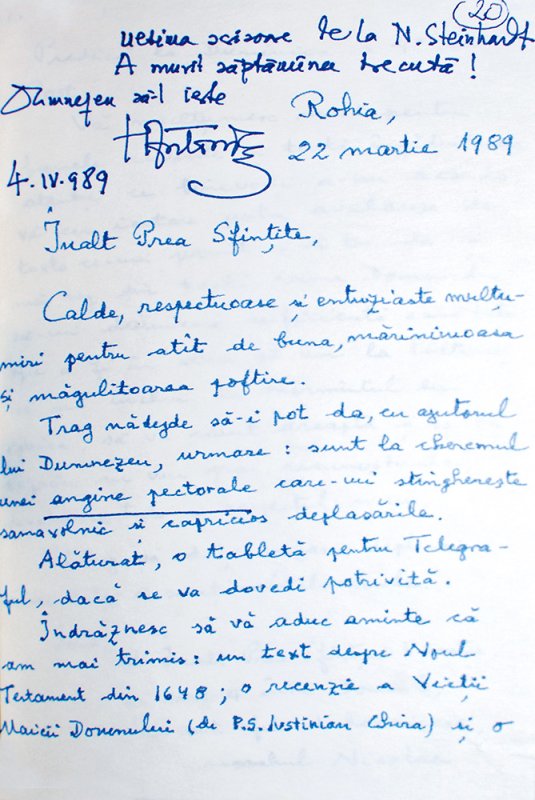 20
Ultima scisoare de la N. Steinhardt
A murit săptămîna trecută!
Dumnezeu să-l ierte
Rohia,
22 martie 1989
4.IV.989
Înalt Prea Sfințite,
Calde, respectuoase și entuziaste mulțu-
miri pentru atît de buna, mărinimoasa
și măgulitoarea poftire.
Trag nădejde să-i pot da, cu ajutorul
lui Dumnezeu, urmare: sunt la cheremul
unei angine pectorale care-mi stinghereşte
samavolnic și capricios deplasările.
Alăturat, o tabletă pentru Telegra-
ful, dacă se va dovedi potrivită.
Îndrăznesc să vă aduc aminte că
am mai trimis: un text despre Noul
Testament din 1648; o recenzie a Vieții
Maicii Domnului (de P.S. Iustinian Chira) și o